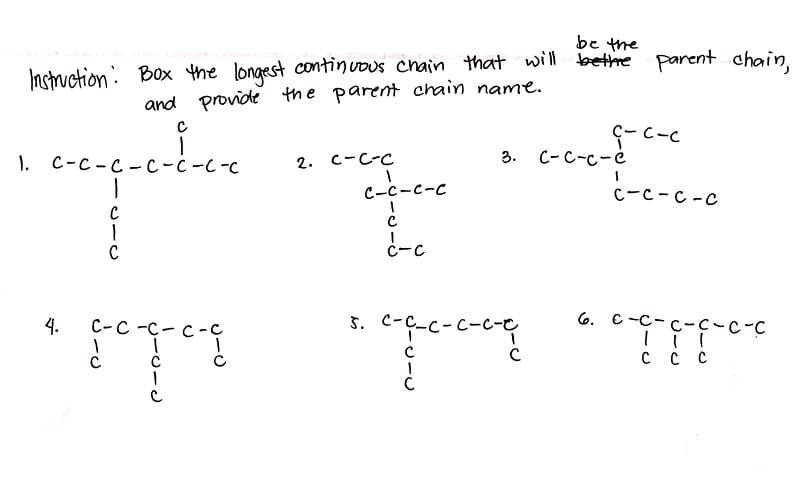 be the
Instruction: Box the longest continuous chain that will bethe parent chain,
and provide the parent chain name.
C
1. C-C-C-C-C-C-C
C
C
2. C-C-C
C-C-C-C
C
C-C
C-C-C
3. C-C-C-C
C-C-C-C
4. C-C-C-C-C
C C C
C
5. C-C-C-C-C-C
C C
C
6. C-C-C-C-C-C
C C C